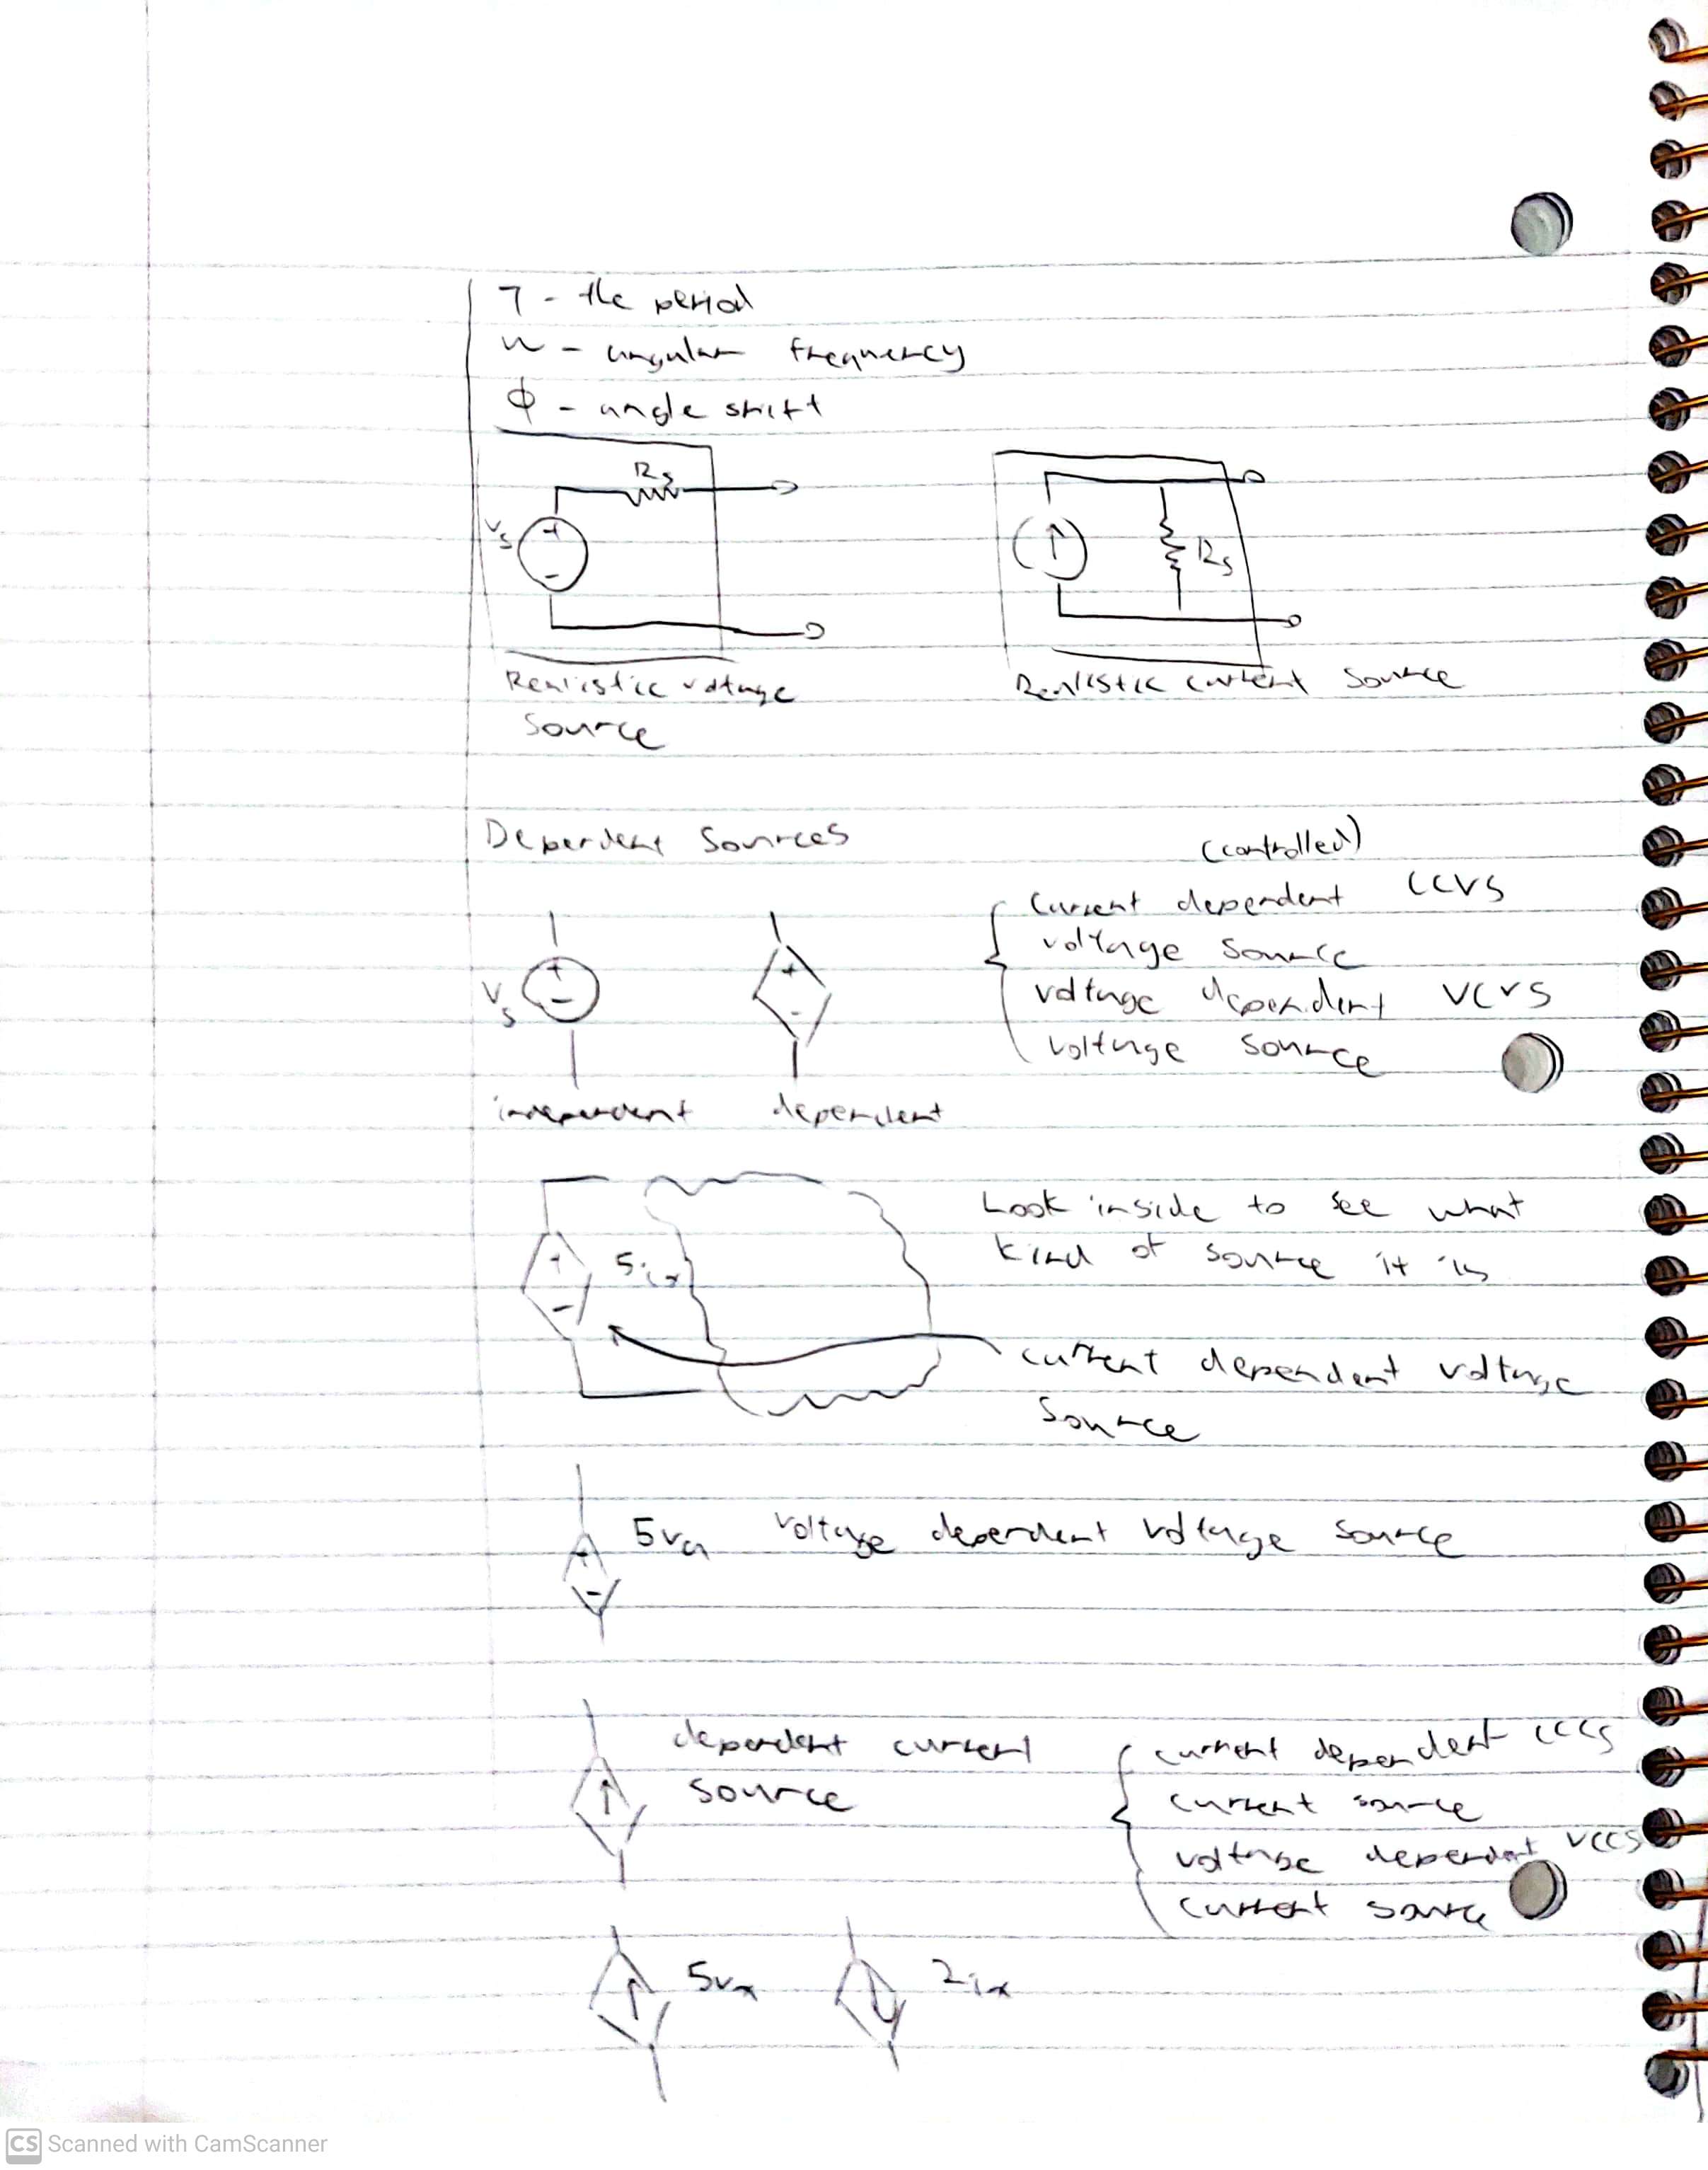 T - the period
ω - angular frequency
ϕ - angle shift
Rs
Vs
+
-
↑
Rs
Realistic voltage
Source
Realistic current source
Dependent Sources
(controlled)
Current dependent CCVS
voltage source
voltage dependent VCVS
voltage source
Vs
+
-
+
-
independent
dependent
Look inside to see what
kind of source it is
+
-
5ix
current dependent voltage
source
+
-
5va voltage dependent voltage source
dependent current
source
↑
current dependent CCCS
current source
voltage dependent VCCS
current source
↑
5vx
↓
2ix
CS Scanned with CamScanner